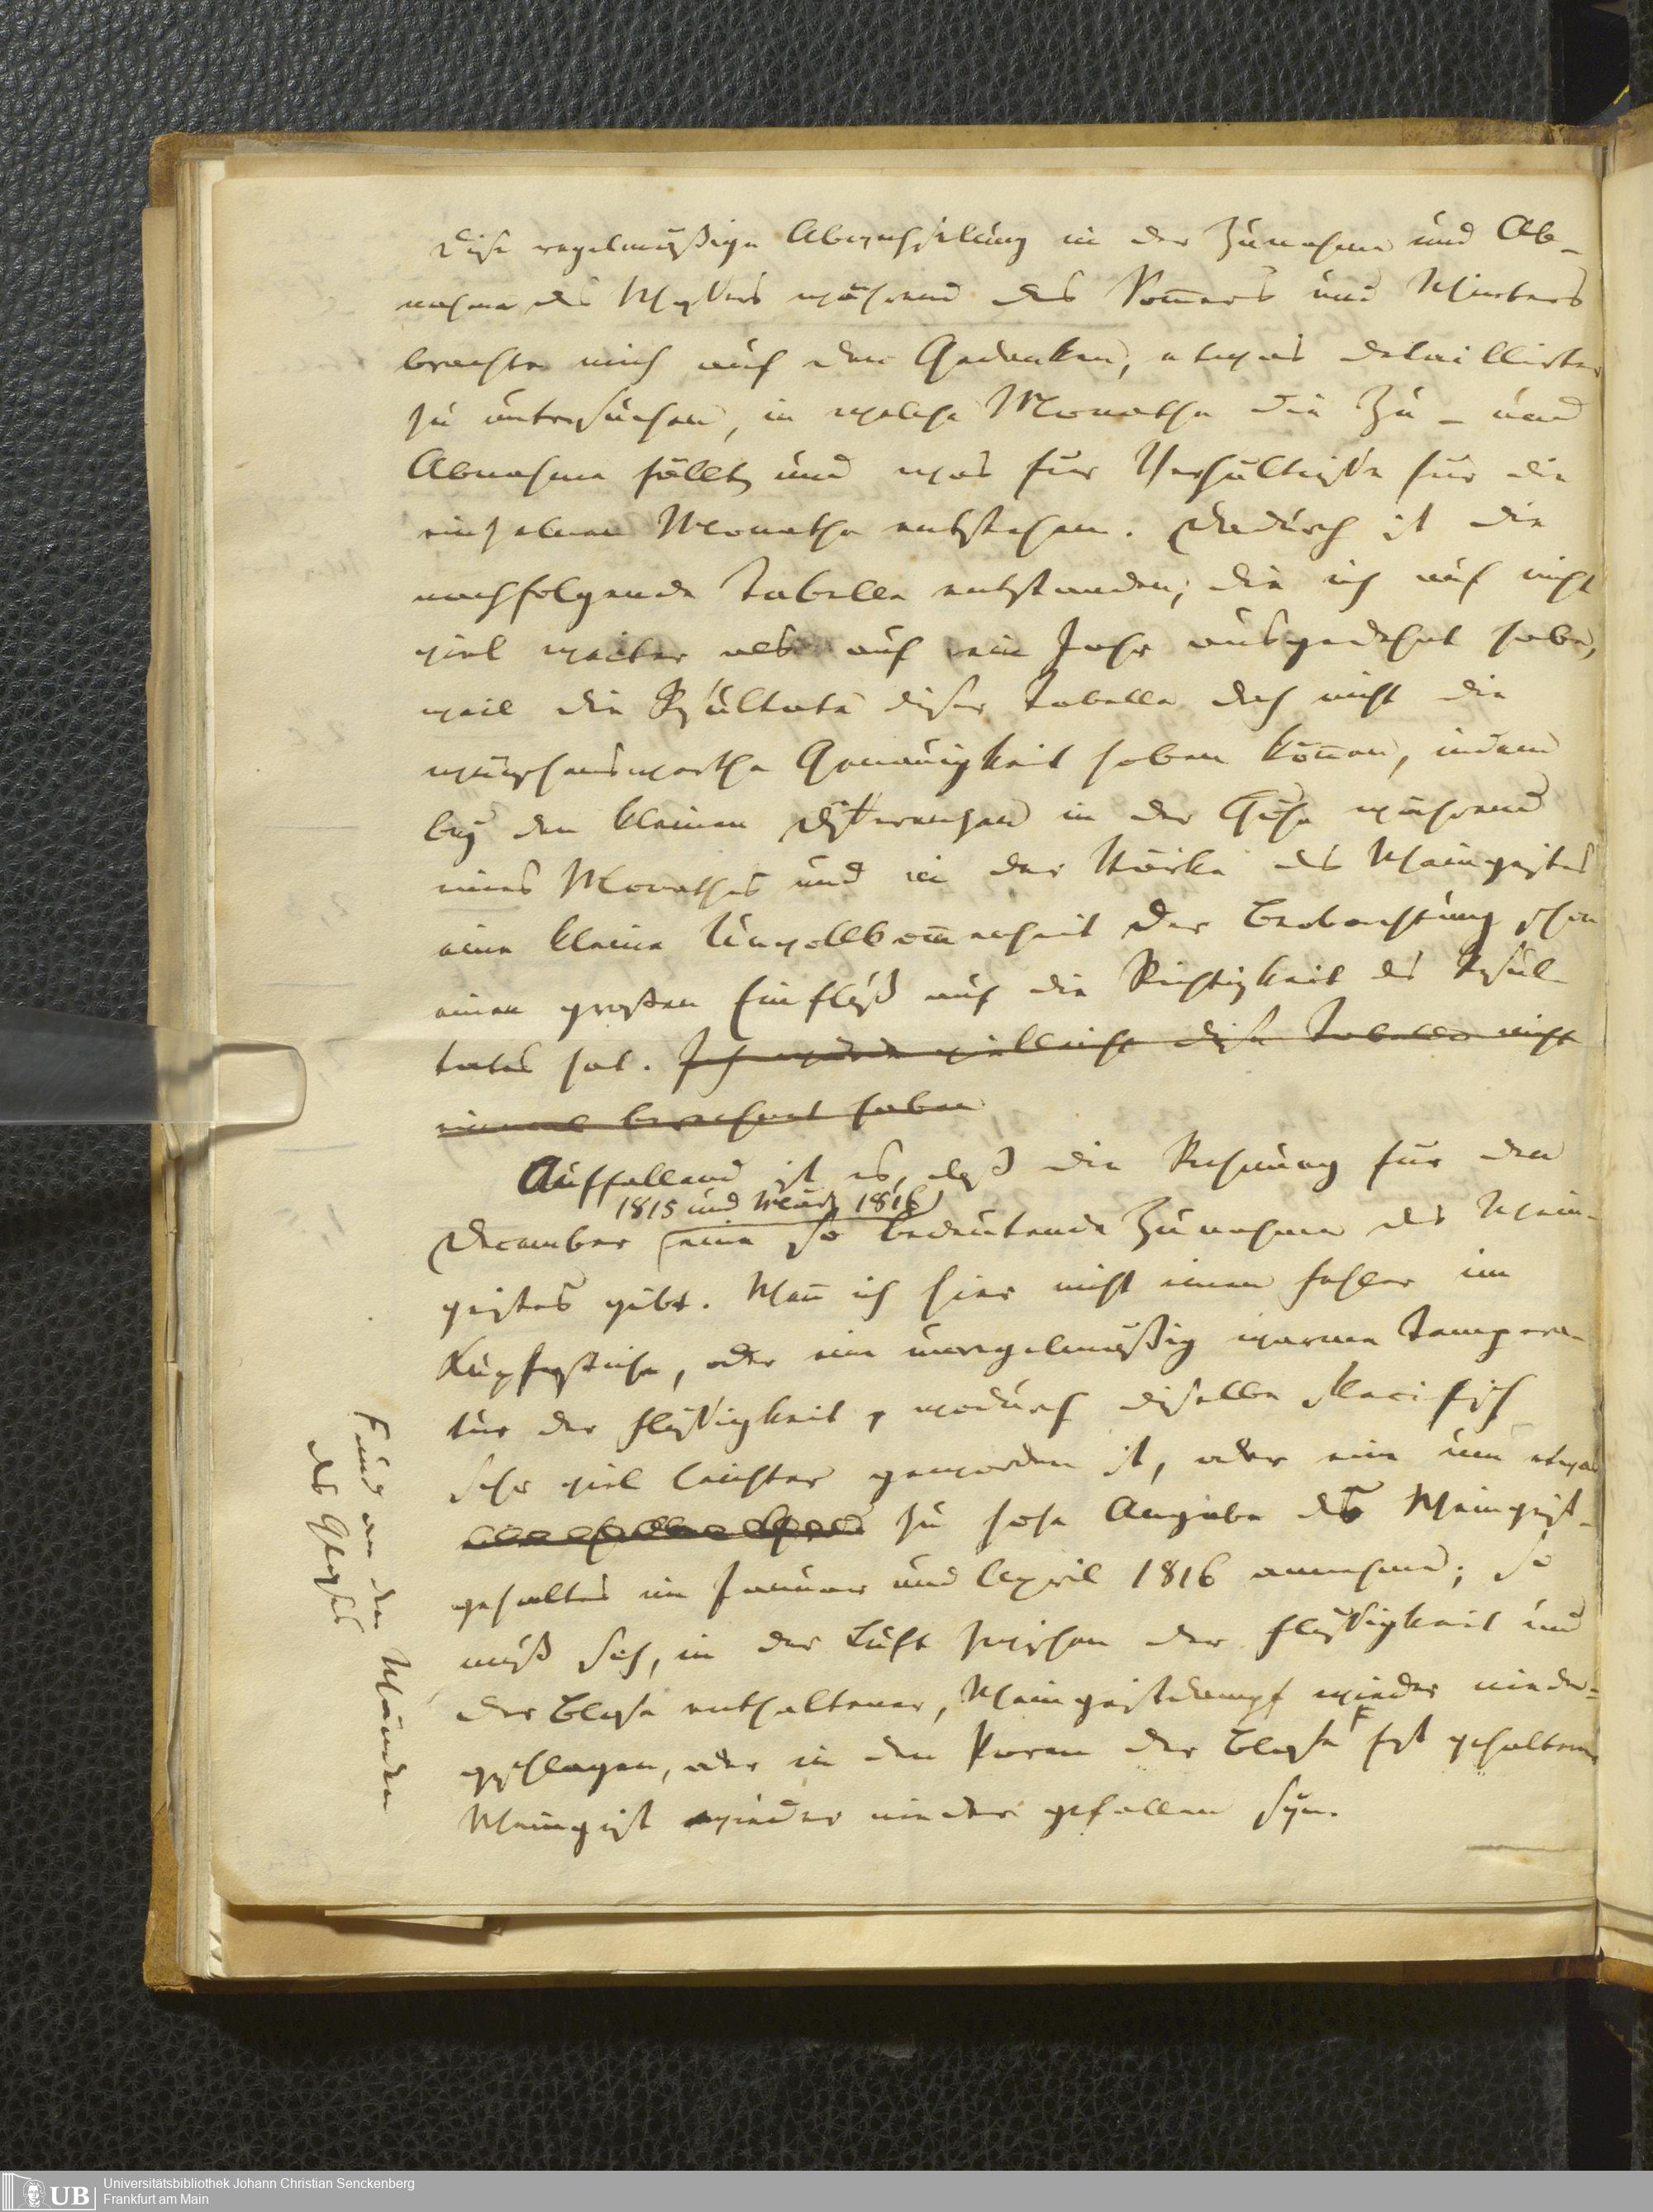 Diese regelmäßige Abwechselung in der Zunahme und Ab-
nahme des Wassers während des Som̄ers und Winters
brachte mich auf den Gedanken, etwas detaillirter
zu untersuchen, in welche Monathe die Zu- und
Abnahme fällt, und was für Verhältnisse für die
einzelnen Monathe entstehen. Dadurch ist die
nachfolgende Tabelle entstanden; die ich auf nicht
viel weiter als auf ein Jahr ausgedehnt habe,
weil die Resultate dieser Tabelle doch nicht die
wünschenswerthe Genauigkeit haben kön̄en, indem
bey den kleinen Differenzen in der Höhe während
eines Monathes und in der Stärke des Weingeistes
eine kleine Unvollkom̄enheit der Beobachtung schon
einen großen Einfluß auf die Richtigkeit des Resul-
tates hat. Ich würde vielleicht diese Tabelle nicht
einmal berechnet haben
Auffallend ist es, daß die Rechnung für den
1815 und März 1816
December eine so bedeutende Zunahme des Wein-
geistes gibt. Wen̄ ich hier nicht einen Fehler im
Kupferstiche, oder eine unregelmäßig warme Tempera-
tur der Flüssigkeit, wodurch dieselbe specifisch
sehr viel leichter geworden ist, oder eine um etwas
zu hohe Angabe des Weingeist-
gehaltes im Januar und April 1816 annehme; so
muß sich, in der Luft zwischen der Flüssigkeit und
der Blase enthaltener, Weingeistdampf wieder nieder-
geschlagen, oder in den Poren der Blase F fest gehaltener
Weingeist wieder nieder gefallen seyn.
F und an den Wänden
des Glases
UB
Universitätsbibliothek Johann Christian Senckenberg
Frankfurt am Main